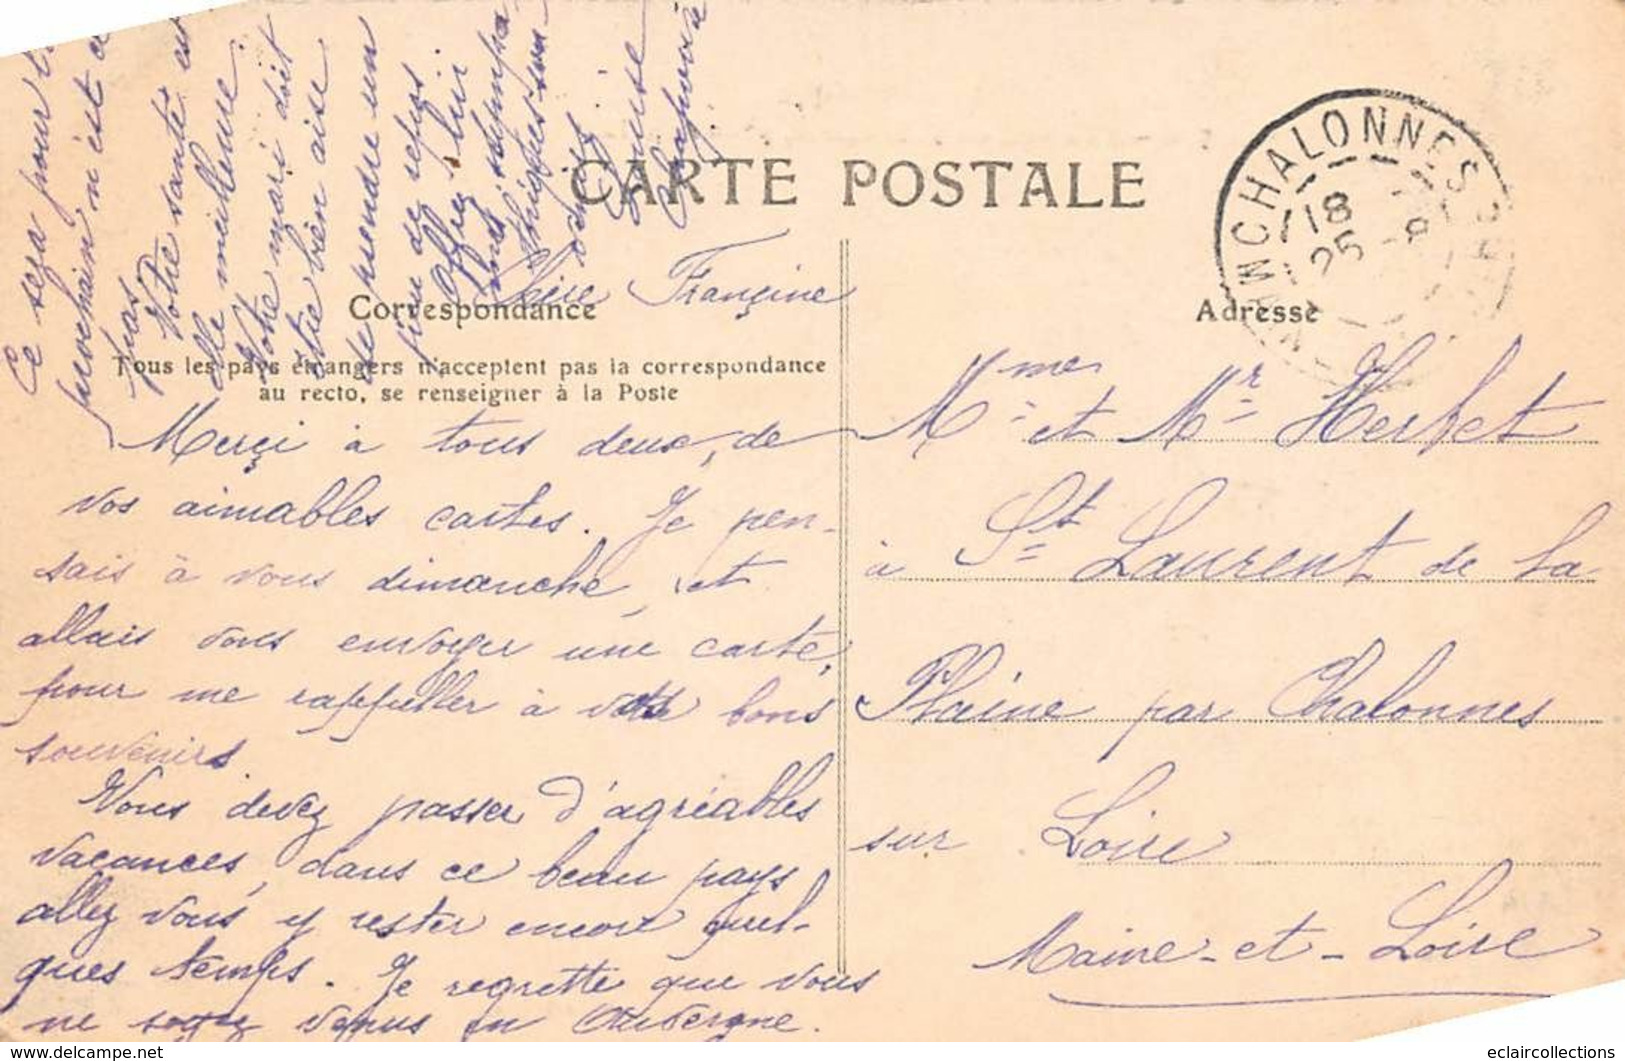 CARTE POSTALE
Correspondance
Tous les pays étrangers n'acceptent pas la correspondance
au recto, se renseigner à la Poste
Adresse
CHALONNES
18
25
Chère Françine
Merçi à tous deux, de
vos aimables cartes. Je pen-
sais à vous dimanche, et
allais vous envoyer une carte,
pour me rappeller à vos bons
souvenirs.
Vous devez passer d'agréables
vacances, dans ce beau pays
allez vous y rester encore quel-
ques temps. Je regrette que vous
ne soyez venus en Auvergne.
Ce sera pour l'
prochain n'est ce
pas
Votre santé est
elle meilleure
Votre mari doit
être bien aise
de prendre un
peu de repos
Offrez lui
Louise
Mme et Mr Herbet
à St Laurent de la
Plaine par Chalonnes
sur Loire
Maine-et-Loire
eclaircollections
delcampe.net